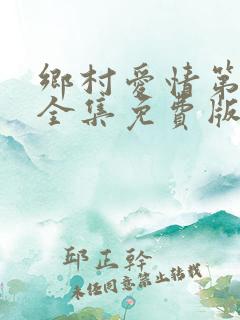 鄉村愛情第
全集免費版
邱正幹
未經同意禁止轉載